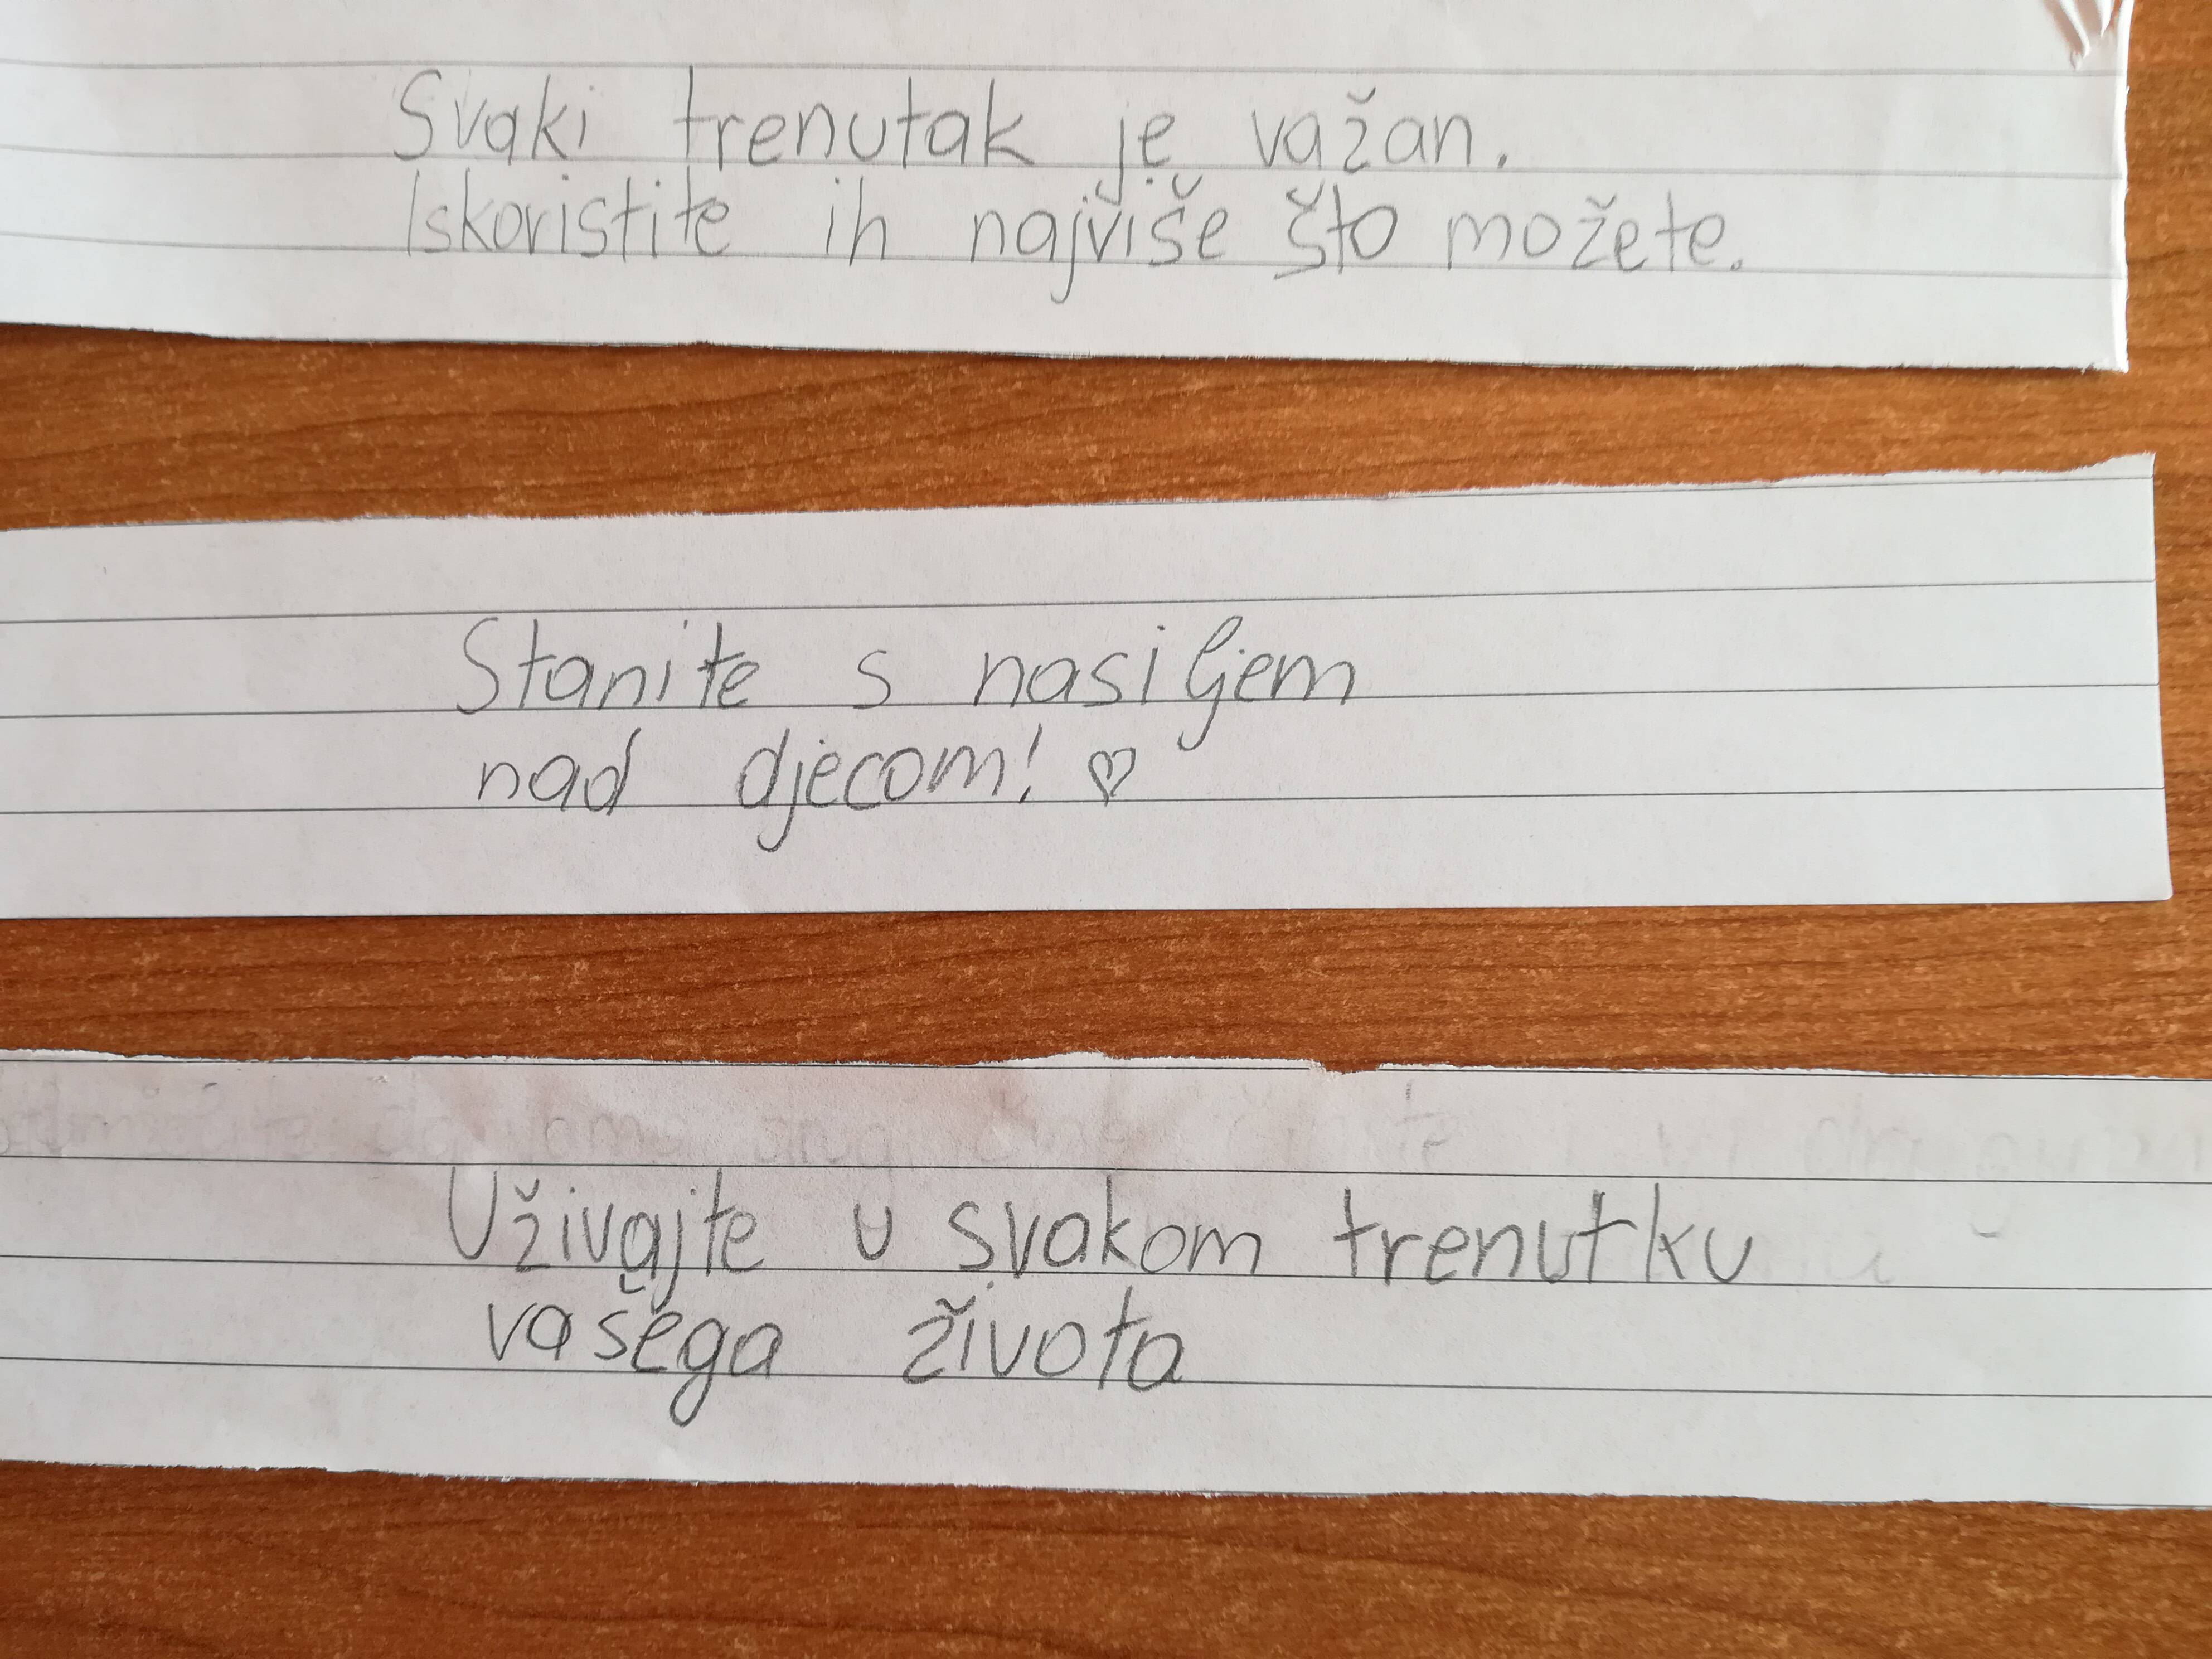 Svaki trenutak je važan.
Iskoristite ih najviše što možete.
Stanite s nasiljem
nad djecom! ♡
Uživajte u svakom trenutku
vašega života